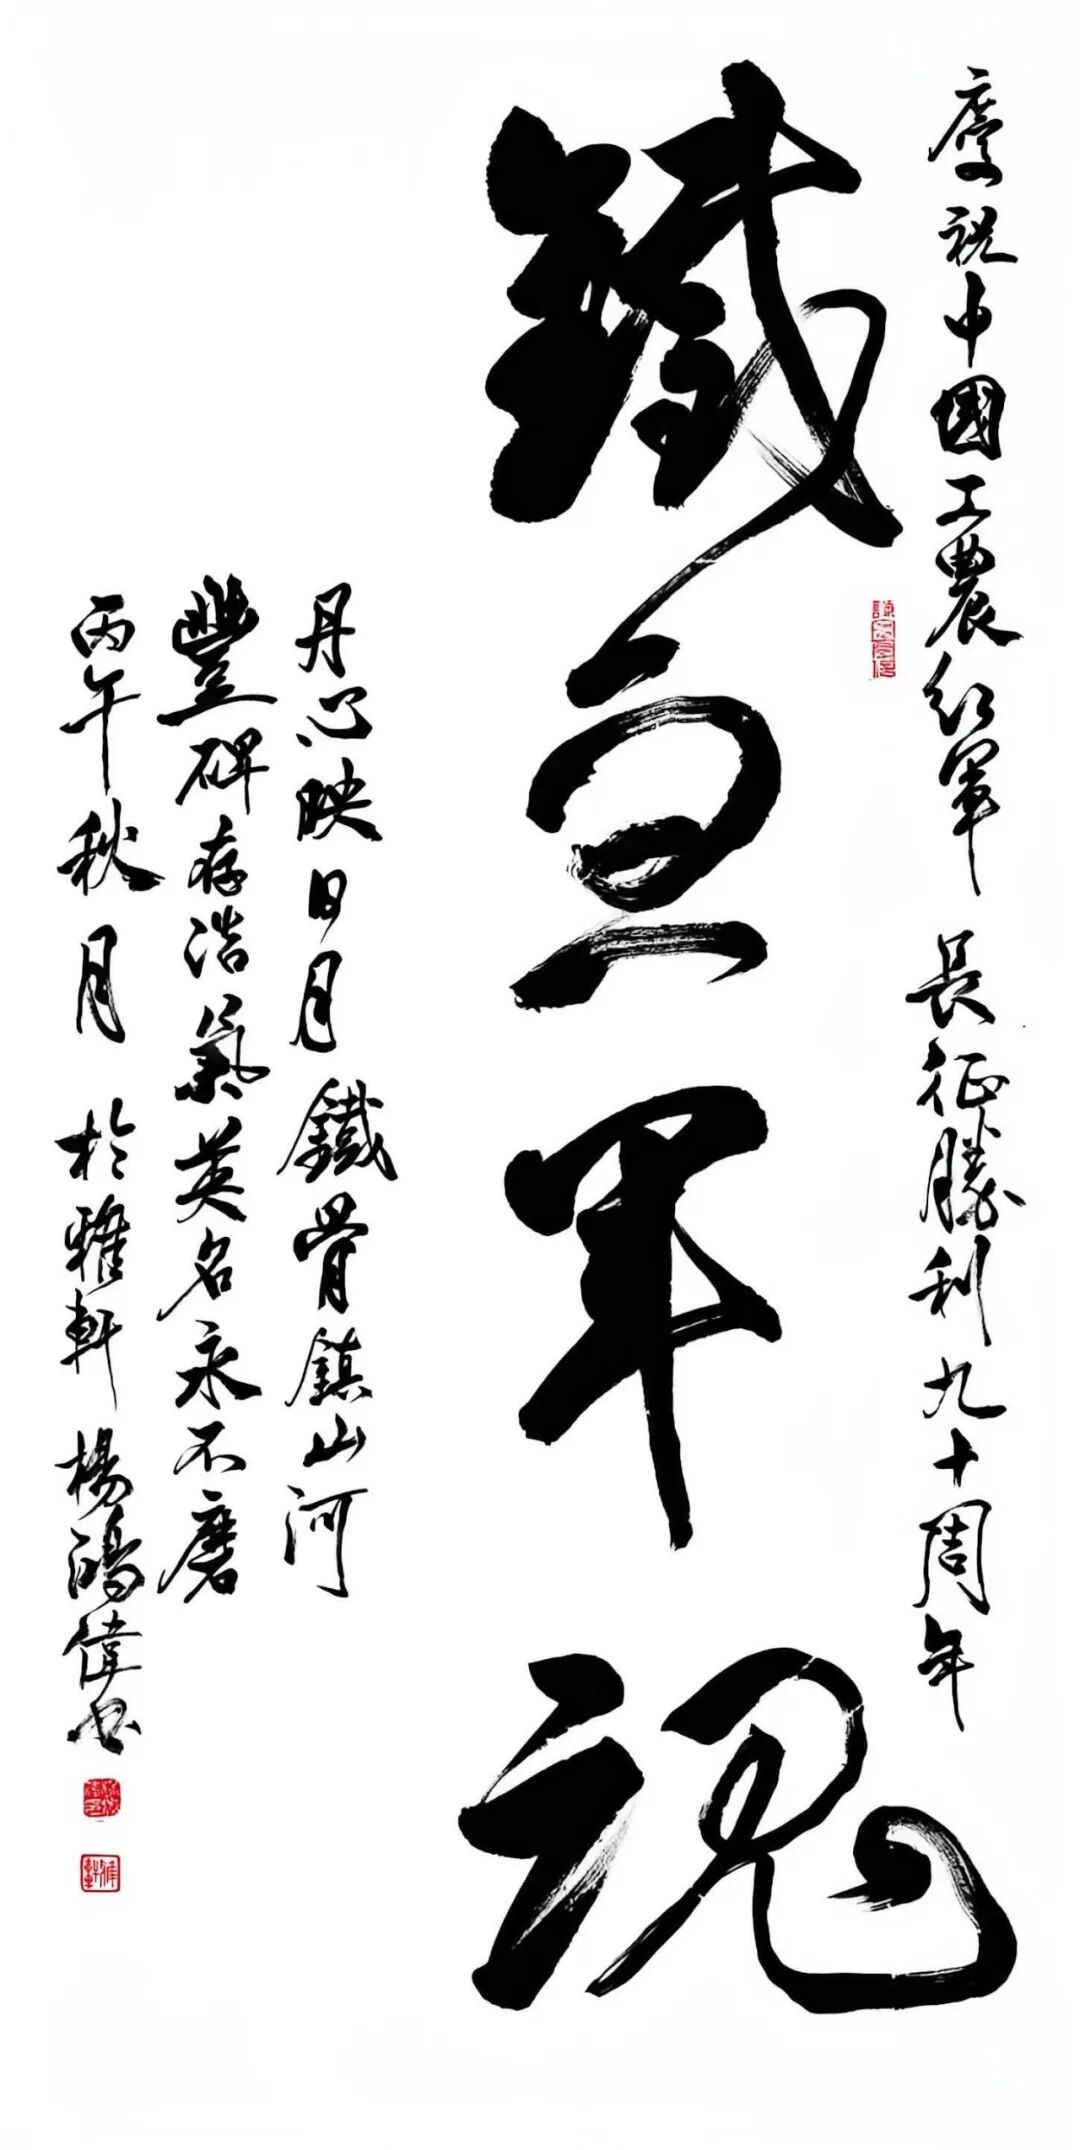 慶祝中國工農紅軍 長征勝利九十周年
鐵血軍魂
丹心映日月 鐵骨鎮山河
豐碑存浩氣英名永不磨
丙午秋月 於雅軒 楊鴻偉書